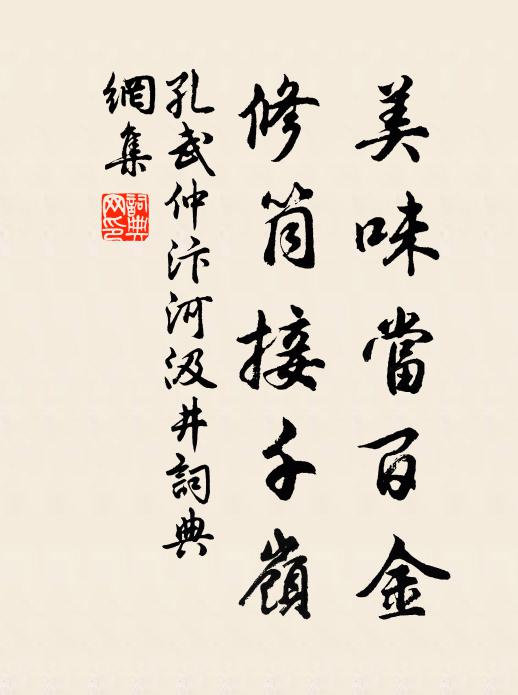 美味當百金
修筒接千嶺
孔武仲汴河汲井詞典
網集
詞典
网印